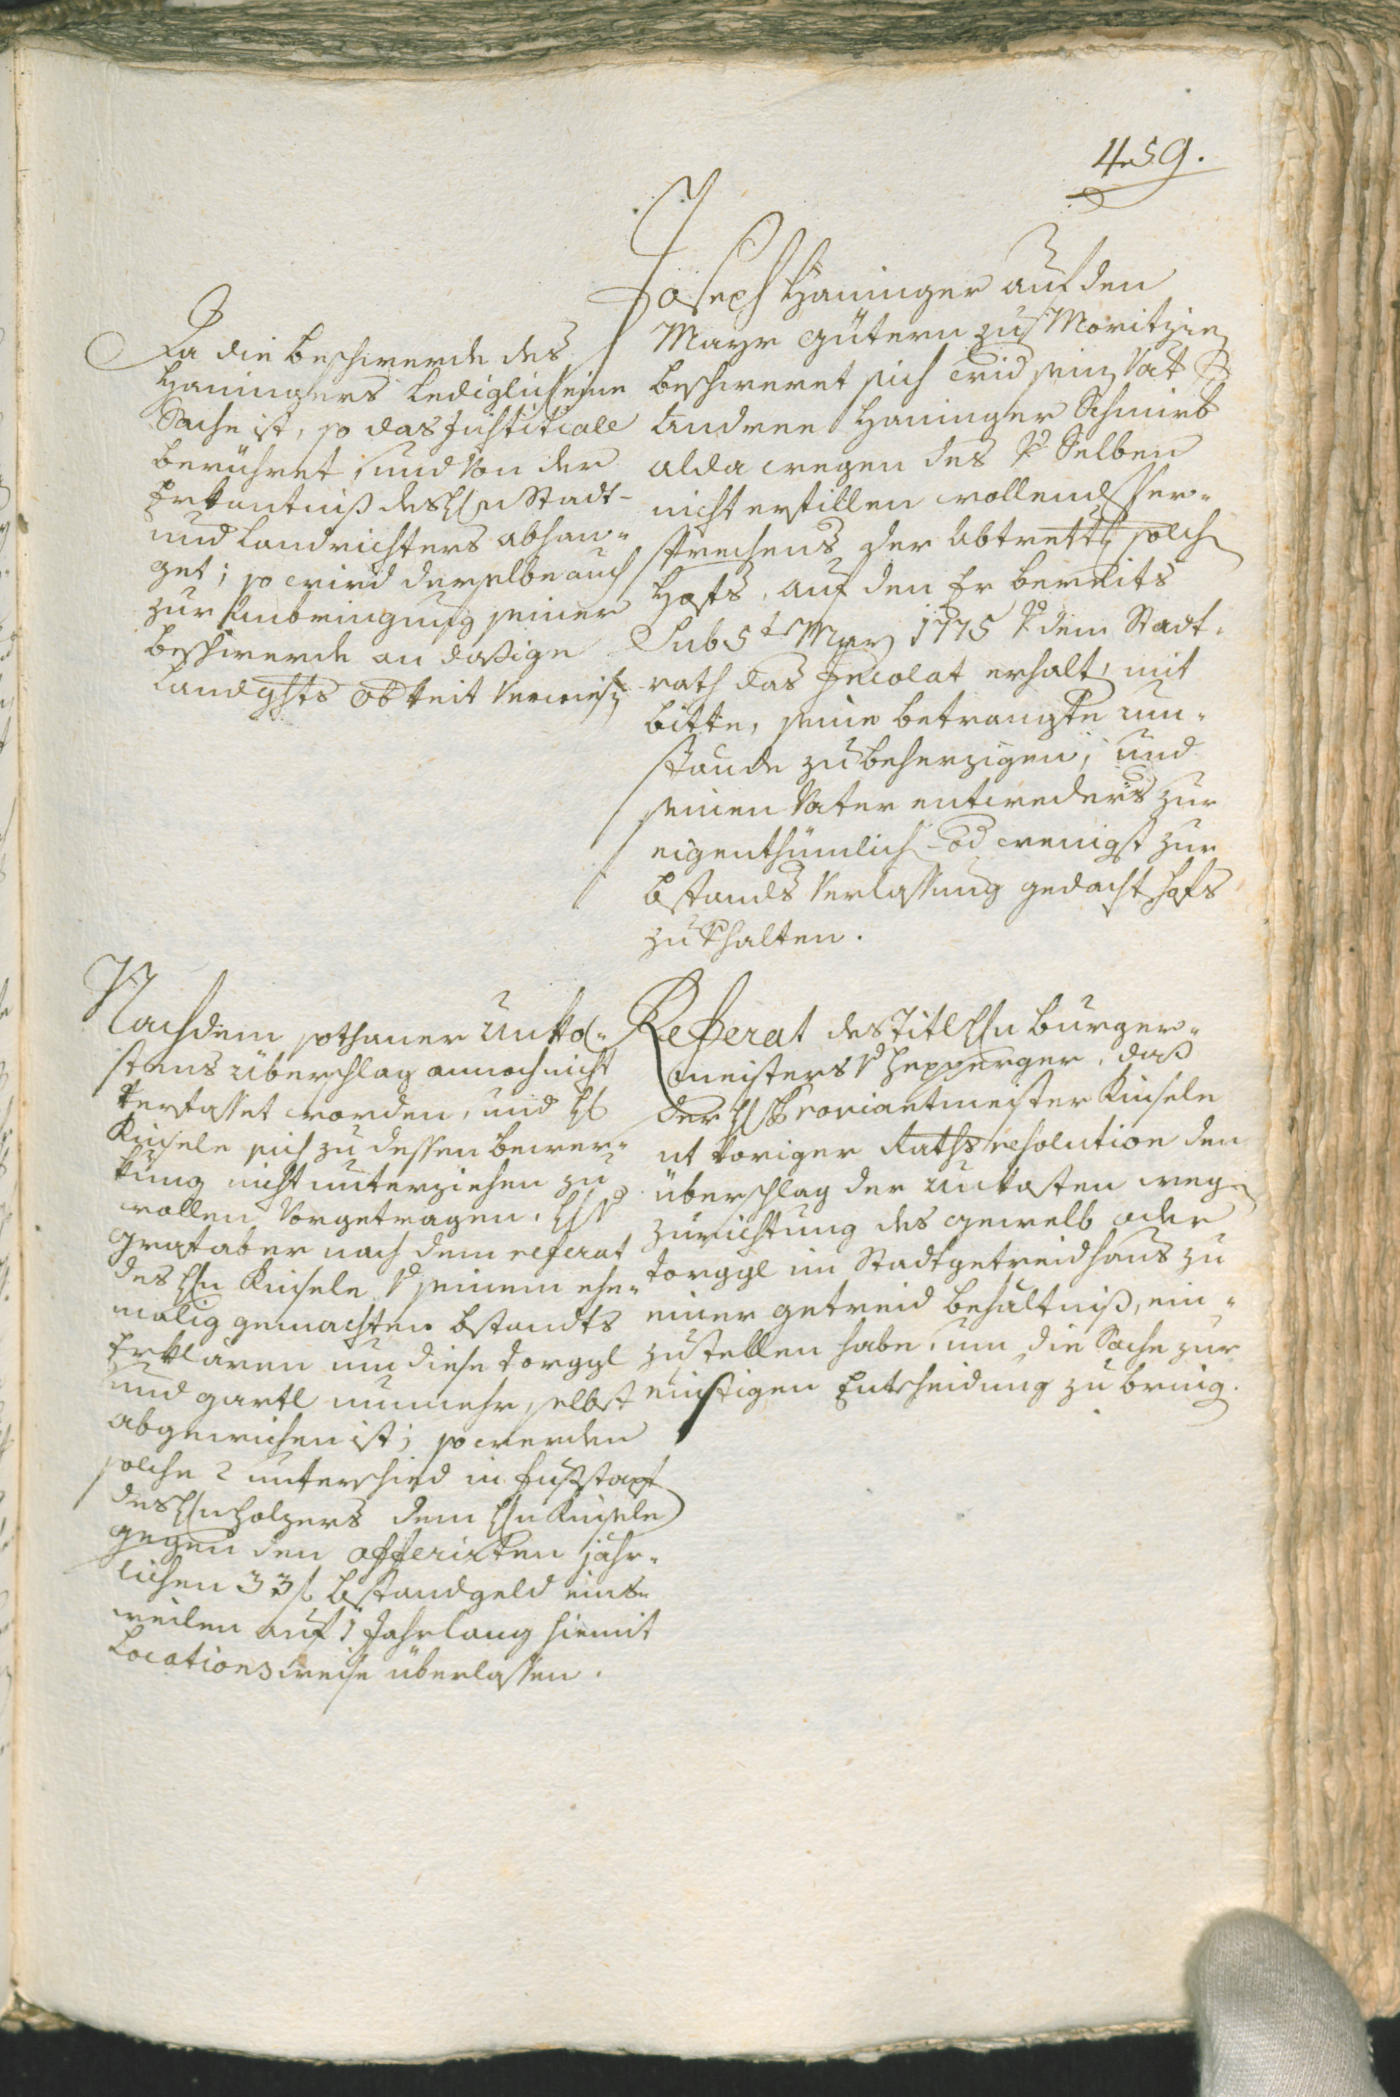 459.
Joseph Haninger auf den
Mayr Gütern zu Moritzing
beschweret sich wid sein Vat
Andree Haninger Schmirb
alda wegen des v Selben
nicht erfillen wollend Ver-
sprechens der Abtrettg solch
Hofs, auf den Er bereits
Sub 5t May 1775 v dem Stadt-
rath das Incolat erhalt, mit
bitte, seine betrangte um-
stände zu beherzigen, und
seinen Vater entweders zur
eigenthümlich od wenigst zur
bstands Verlassung gedacht Hofs
zu verhalten.
Da die beschwerde des
Haningers Lediglich eine
Sache ist, so das Justitiale
berühret, und Von der
Erkantniß des Hn Stadt-
und Landrichters abhan-
get; so wird derselbe auch
zur Anbringung seiner
beschwerde an dasige
Landghts Obkeit Verwisn
Referat des Titl Hn Burger-
meisters v Hepperger, daß
der H Proviantmeister Kinsele
ut voriger Rathsresolution den
überschlag der Unkosten weg
zurichtung des gewelb oder
torggl im Stadtgetreidhaus zu
einer getreid behältniß, ein-
zustellen habe, um die Sache zur
einstigen Entscheidung zu bring.
Nachdem sothaner Unko-
stens überschlag annoch nicht
verfasset worden, und H
Kinsele sich zu dessen bewer-
kung nicht unterziehen zu
wollen Vorgetragen, H v
Graf aber nach dem referat
des Hn Kinsele v seinem ehe-
malig gemachten bstandts
Erklären um diese torggl
und gartl nunmehr selbst
abgewichen ist; so werden
solche 2 unterschied in fußstapf
des Hn Holzers dem Hn Kinsele
gegen den offerirten jähr-
lichen 33 f bstandgeld eins-
weilen auf 1 Jahr lang hiemit
Locationsweise überlassen.